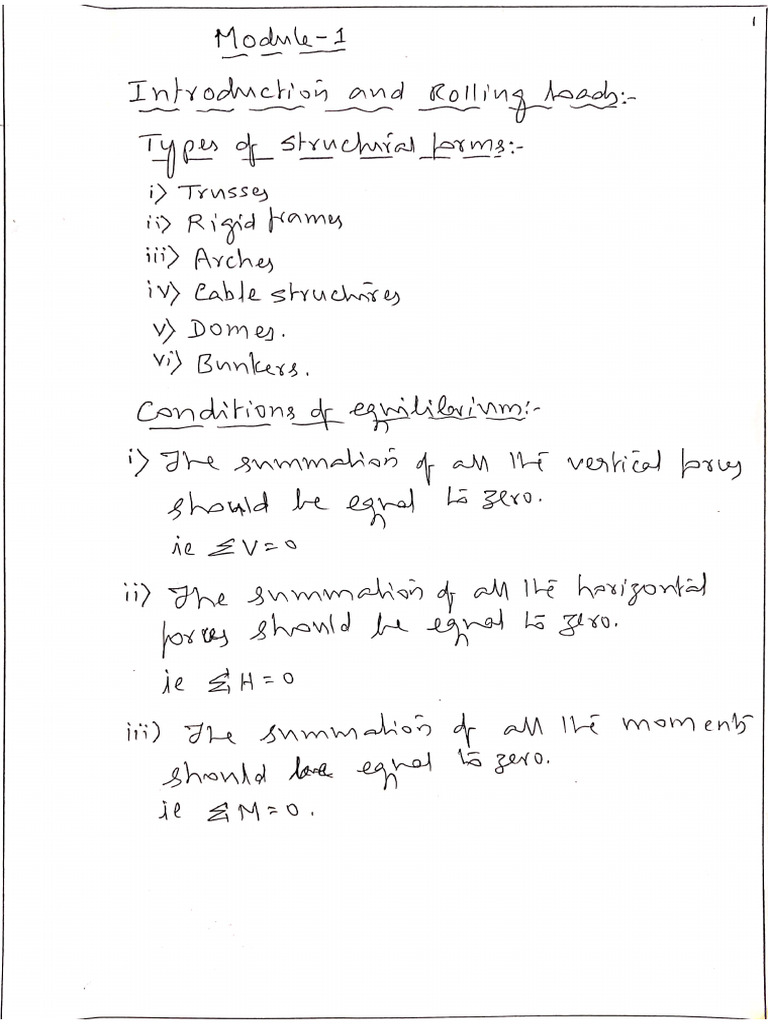 1
Module-1
Introduction and Rolling loads:-
Types of structural forms:-
i) Trusses
ii) Rigid frames
iii) Arches
iv) Cable structures
v) Domes.
vi) Bunkers.
Conditions of equilibrium:-
i) The summation of all the vertical forces
should be equal to zero.
ie ΣV=0
ii) The summation of all the horizontal
forces should be equal to zero.
ie ΣH=0
iii) The summation of all the moments
should be equal to zero.
ie ΣM=0.